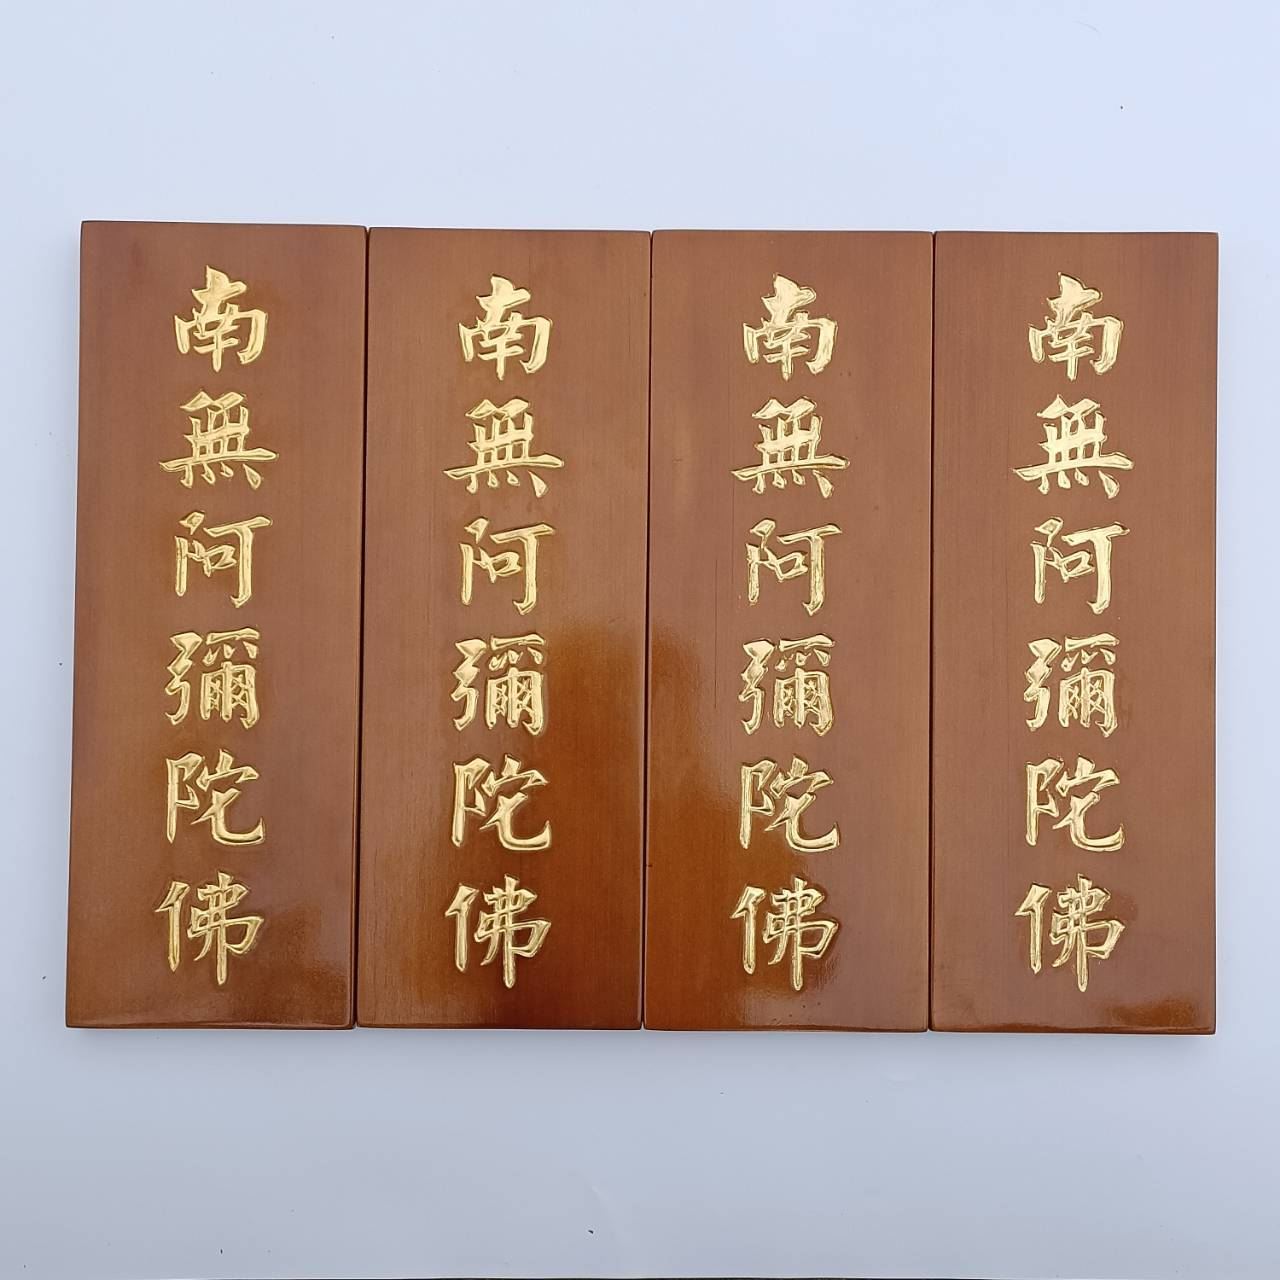 南無阿彌陀佛
南無阿彌陀佛
南無阿彌陀佛
南無阿彌陀佛